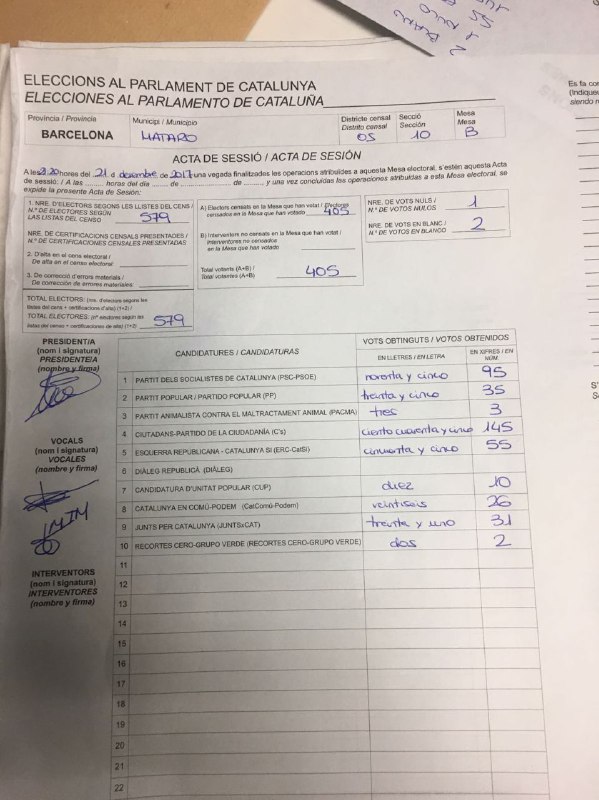 ELECCIONS AL PARLAMENT DE CATALUNYA
ELECCIONES AL PARLAMENTO DE CATALUÑA
Província / Provincia
BARCELONA
Municipi / Municipio
MATARÓ
Districte censal
Distrito censal
05
Secció
Sección
10
Mesa
Mesa
B
ACTA DE SESSIÓ / ACTA DE SESIÓN
A les 21:20 hores del 21 de desembre de 2017 una vegada finalitzades les operacions atribuïdes a aquesta Mesa electoral, s'estén aquesta Acta
de sessió. / A las ........ horas del día ........ de ........ de ........, y una vez concluidas las operaciones atribuidas a esta Mesa electoral, se
expide la presente Acta de Sesión:
1. NRE. D'ELECTORS SEGONS LES LLISTES DEL CENS /
N.º DE ELECTORES SEGÚN
LAS LISTAS DEL CENSO
579
NRE. DE CERTIFICACIONS CENSALS PRESENTADES /
N.º DE CERTIFICACIONES CENSALES PRESENTADAS
2. D'alta en el cens electoral /
De alta en el censo electoral:
3. De correcció d'errors materials /
De corrección de errores materiales:
TOTAL ELECTORS: (nre. d'electors segons les
llistes del cens + certificacions d'alta) (1+2) /
TOTAL ELECTORES: (nº electores según las
listas del censo + certificaciones de alta) (1+2)
579
A) Electors censats en la Mesa que han votat / Electores
censados en la Mesa que han votado
405
B) Interventors no censats en la Mesa que han votat /
Interventores no censados
en la Mesa que han votado
Total votants (A+B) /
Total votantes (A+B)
405
NRE. DE VOTS NULS /
N.º DE VOTOS NULOS
1
NRE. DE VOTS EN BLANC /
N.º DE VOTOS EN BLANCO
2
PRESIDENT/A
(nom i signatura)
PRESIDENTE/A
(nombre y firma)
VOCALS
(nom i signatura)
VOCALES
(nombre y firma)
INTERVENTORS
(nom i signatura)
INTERVENTORES
(nombre y firma)
CANDIDATURES / CANDIDATURAS
VOTS OBTINGUTS / VOTOS OBTENIDOS
EN LLETRES / EN LETRA
EN XIFRES / EN NÚM.
1 PARTIT DELS SOCIALISTES DE CATALUNYA (PSC-PSOE) noventa y cinco 95
2 PARTIT POPULAR / PARTIDO POPULAR (PP) treinta y cinco 35
3 PARTIT ANIMALISTA CONTRA EL MALTRACTAMENT ANIMAL (PACMA) tres 3
4 CIUTADANS-PARTIDO DE LA CIUDADANÍA (C's) ciento cuarenta y cinco 145
5 ESQUERRA REPUBLICANA - CATALUNYA SÍ (ERC-CatSí) cincuenta y cinco 55
6 DIÀLEG REPUBLICÀ (DIÀLEG)
7 CANDIDATURA D'UNITAT POPULAR (CUP) diez 10
8 CATALUNYA EN COMÚ-PODEM (CatComú-Podem) veintiseis 26
9 JUNTS PER CATALUNYA (JUNTSxCAT) treinta y uno 31
10 RECORTES CERO-GRUPO VERDE (RECORTES CERO-GRUPO VERDE) dos 2
11
12
13
14
15
16
17
18
19
20
21
22
Es fa con
(Indiqueu
siendo n